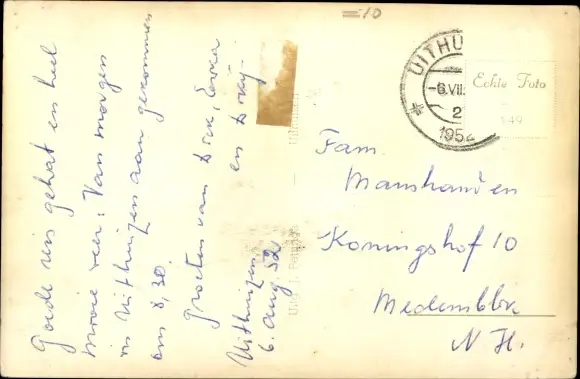 Goede reis gehad en heel
mooie weer. Van morgen
in Uithuizen aan gekomen
om 8,30.
Groeten van Dick, Corra
en Dky
Uithuizen
6. Aug 52
=10
UITHU
-6.VII
2
1952
Echte Foto
549
Fam.
Manshanden
Koningshof 10
Medemblik
N H.